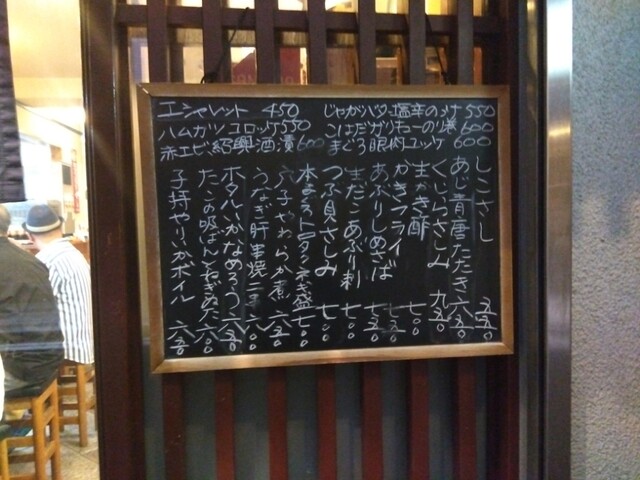 エシャレット 450
じゃがバター塩辛のっけ 550
ハムカツ コロッケ 550
こはだガリキューのり巻 600
赤エビ紹興酒漬 600
まぐろ眼肉ユッケ 600
しこさし 五五〇
あじ青唐たたき 六五〇
くじらさしみ 九五〇
生かき酢 七〇〇
かきフライ 七五〇
あぶりしめさば 七五〇
生だこあぶり刺 七〇〇
つぶ貝さしみ 七〇〇
本まぐろ ねぎ盛 七〇〇
穴子やわらか煮 六五〇
うなぎ肝串焼
ホタルイカなめろう 六五〇
たこの吸ばんねぎぬた 六〇〇
子持やりいかボイル 六五〇